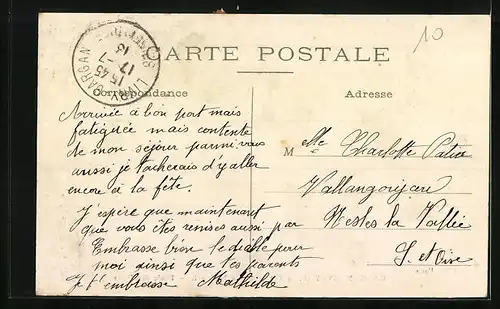 10
CARTE POSTALE
LIVRY GARGAN
15 45
17 - 7
Correspondance
Adresse
Arrivée à bon port mais
fatiguée mais contente
de mon séjour parmi vous
aussi je tacherais d'y aller
encore à la fête.
J'espère que maintenant
que vous êtes remises aussi
Embrasse bien le diable pour
moi ainsi que tes parents
Je t'embrasse Mathilde
Melle Charlotte
Vallangoujard
par Nesles la Vallée
S. et Oise